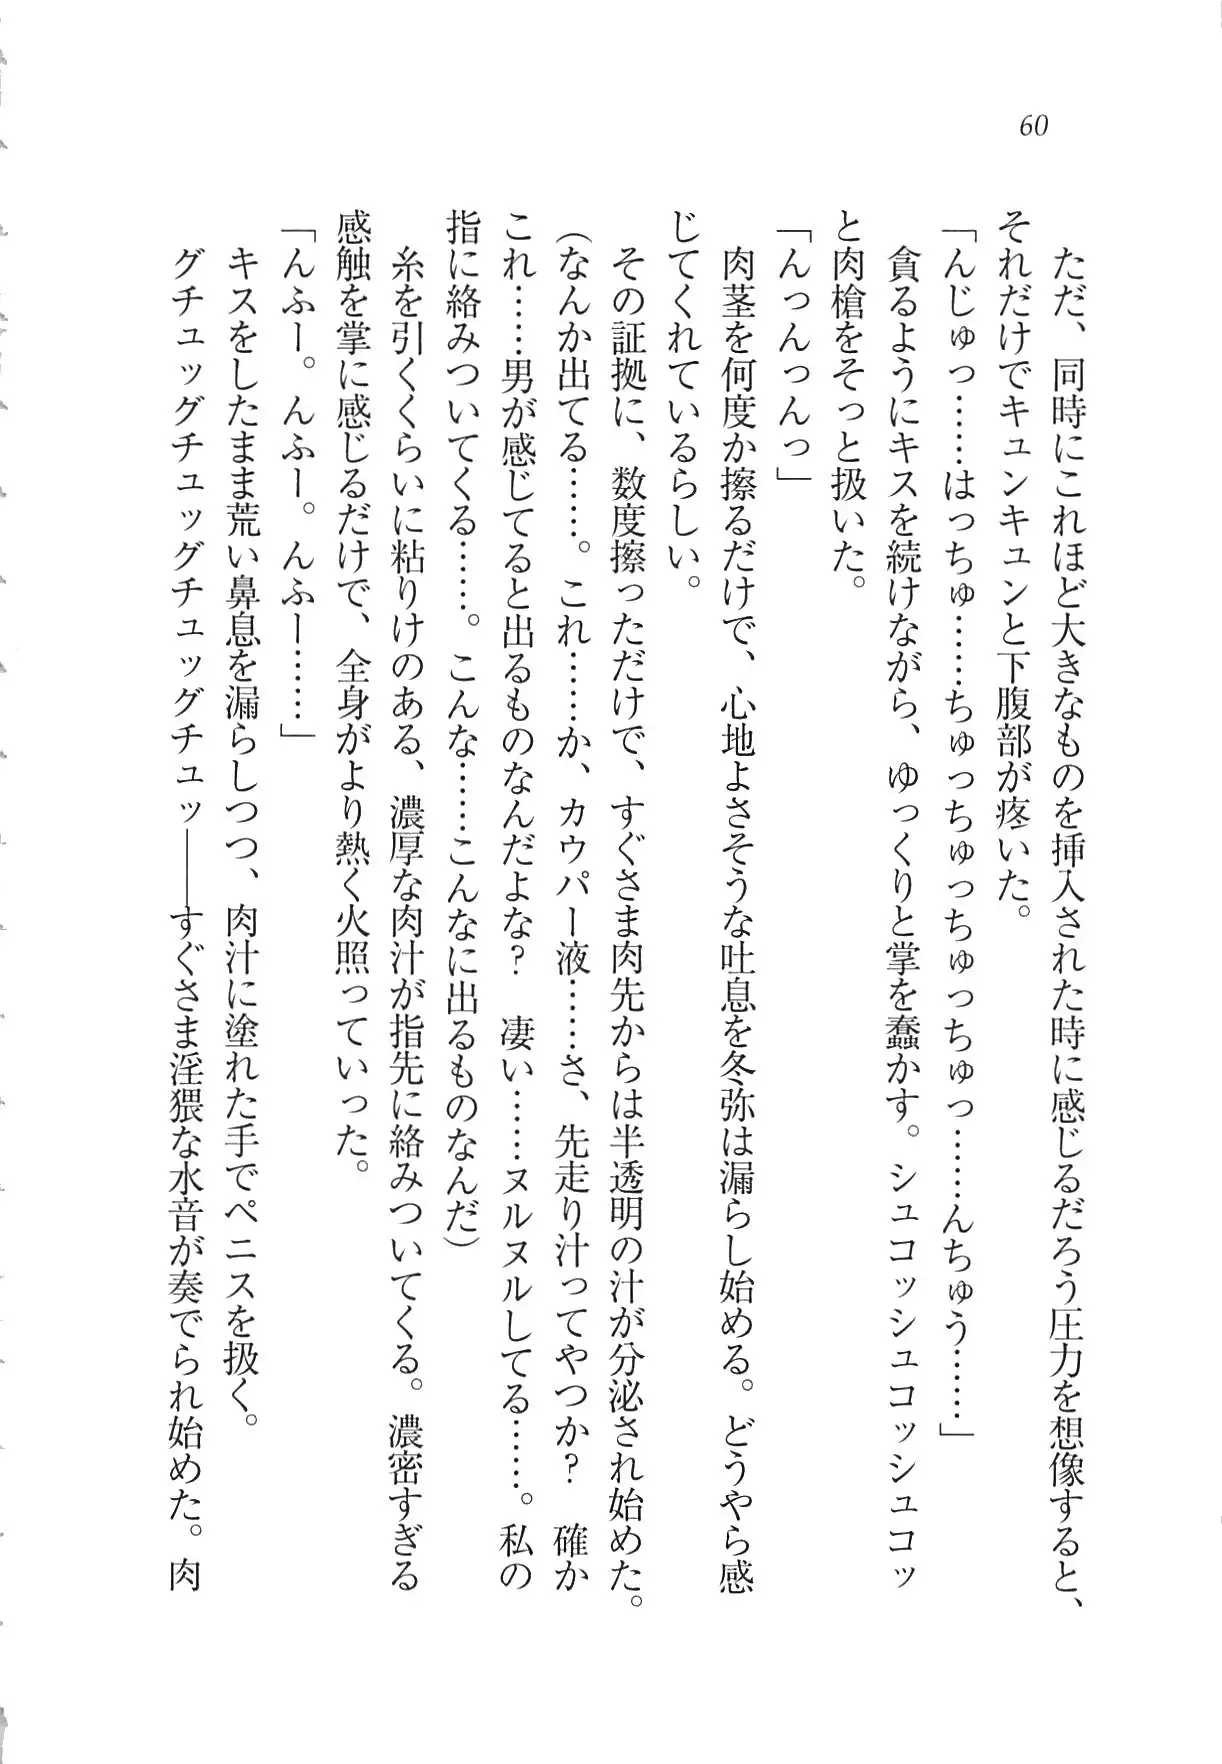 60
ただ、同時にこれほど大きなものを挿入された時に感じるだろう圧力を想像すると、
それだけでキュンキュンと下腹部が疼いた。
「んじゅっ……はっちゅ……ちゅっちゅっちゅっちゅっ……んちゅう……」
貪るようにキスを続けながら、ゆっくりと掌を蠢かす。シュコッシュコッシュコッ
と肉槍をそっと扱いた。
「んっんっんっ」
肉茎を何度か擦るだけで、心地よさそうな吐息を冬弥は漏らし始める。どうやら感
じてくれているらしい。
その証拠に、数度擦っただけで、すぐさま肉先からは半透明の汁が分泌され始めた。
（なんか出てる……。これ……か、カウパー液……さ、先走り汁ってやつか？　確か
これ……男が感じてると出るものなんだよな？　凄い……ヌルヌルしてる……。私の
指に絡みついてくる……。こんな……こんなに出るものなんだ）
糸を引くくらいに粘りけのある、濃厚な肉汁が指先に絡みついてくる。濃密すぎる
感触を掌に感じるだけで、全身がより熱く火照っていった。
「んふー。んふー。んふー……」
キスをしたまま荒い鼻息を漏らしつつ、肉汁に塗れた手でペニスを扱く。
グチュッグチュッグチュッグチュッ――すぐさま淫猥な水音が奏でられ始めた。肉